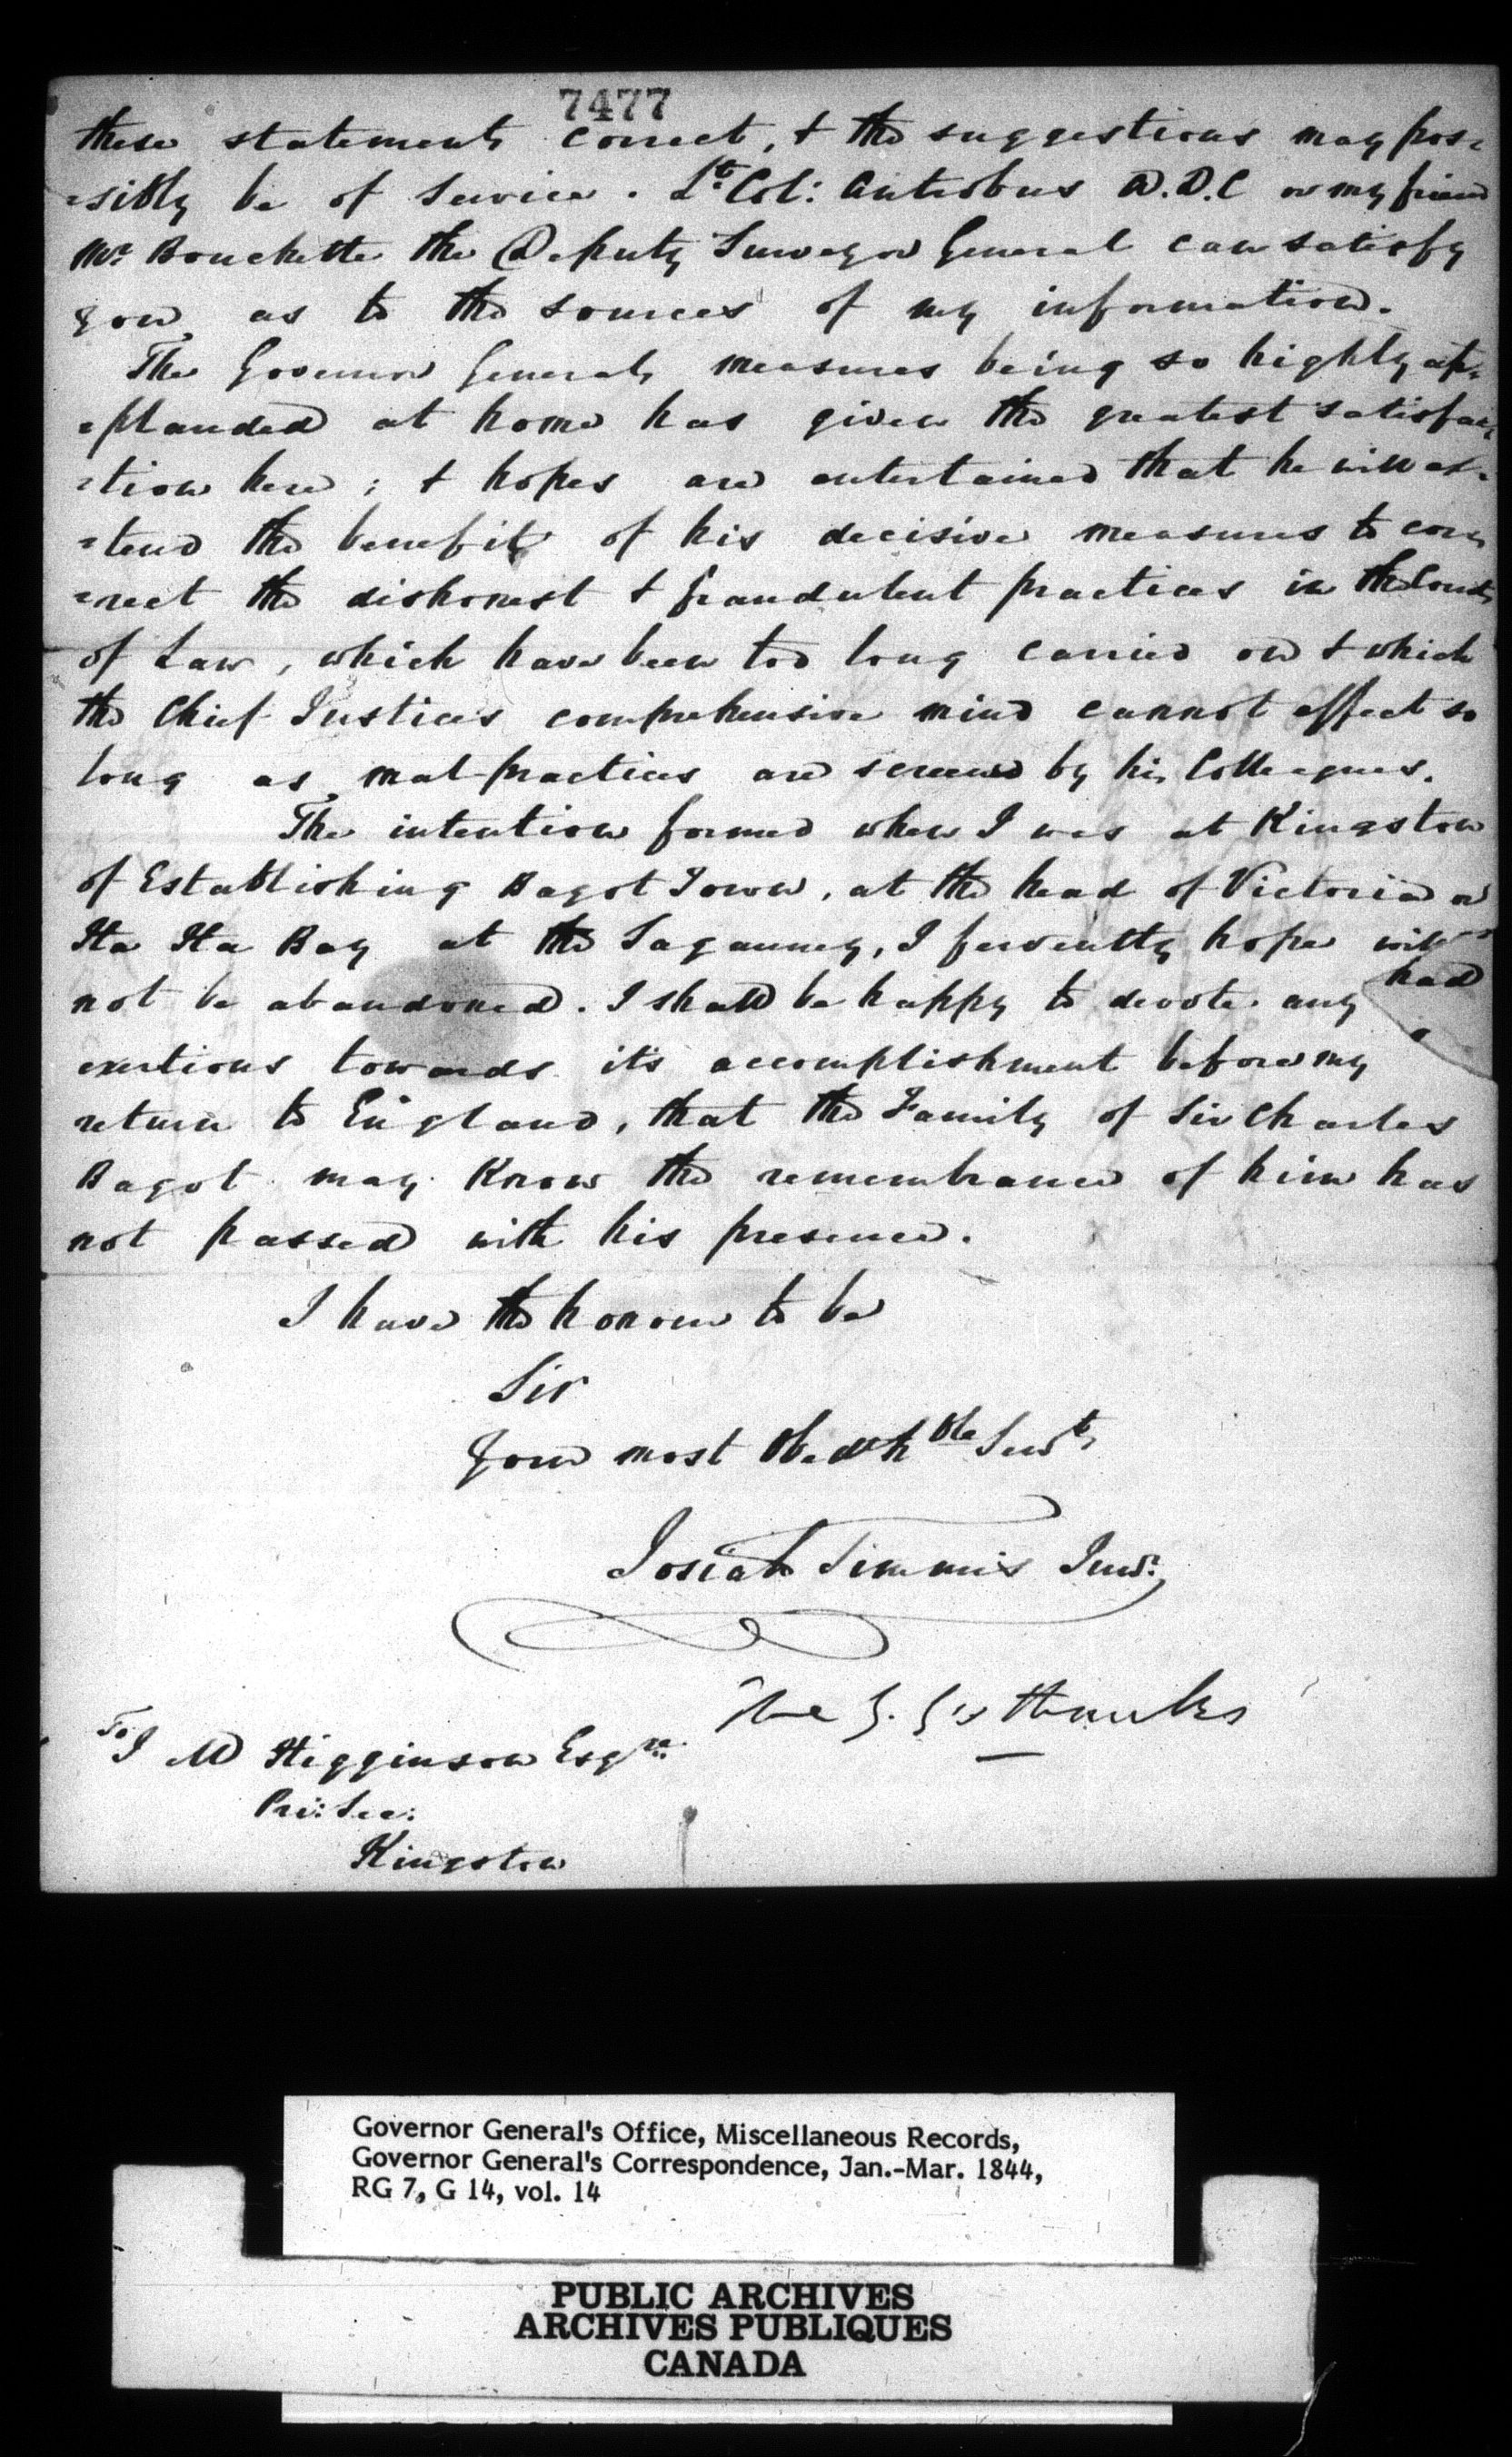 7477
these statements correct, & the suggestions may pos=
=sibly be of Service. Lt. Col: Antrobus A.D.C or my friend
Mr. Bouchette the Deputy Surveyor General can satisfy
you, as to the sources of my information.
The Governor Generals measures being so highly ap=
=plauded at home has given the greatest satisfac=
=tion here; & hopes are entertained that he will ex=
=tend the benefit of his decisive measures to cor=
=rect the dishonest & fraudulent practices in the Courts
of Law, which have been too long carried on & which
the Chief Justices comprehensive mind cannot affect so
long as mal-practices are screened by his Colleagues.
The intention formed when I was at Kingston
of Establishing Bagot Town, at the head of Victoria or
Ha Ha Bay at the Saganney, I fervently hope will
not be abandoned. I shall be happy to devote any
had
exertions towards it's accomplishment before my
return to England, that the Family of Sir Charles
Bagot may Know the remembrance of him has
not passed with his presence.
I have the honour to be
Sir
Your most Obedt hble Servt,
Josiah Timmis Junr.
The G. G's thanks
To J M Higginson Esqre.
Pri: Sec:
Kingston
Governor General's Office, Miscellaneous Records,
Governor General's Correspondence, Jan.-Mar. 1844,
RG 7, G 14, vol. 14
PUBLIC ARCHIVES
ARCHIVES PUBLIQUES
CANADA